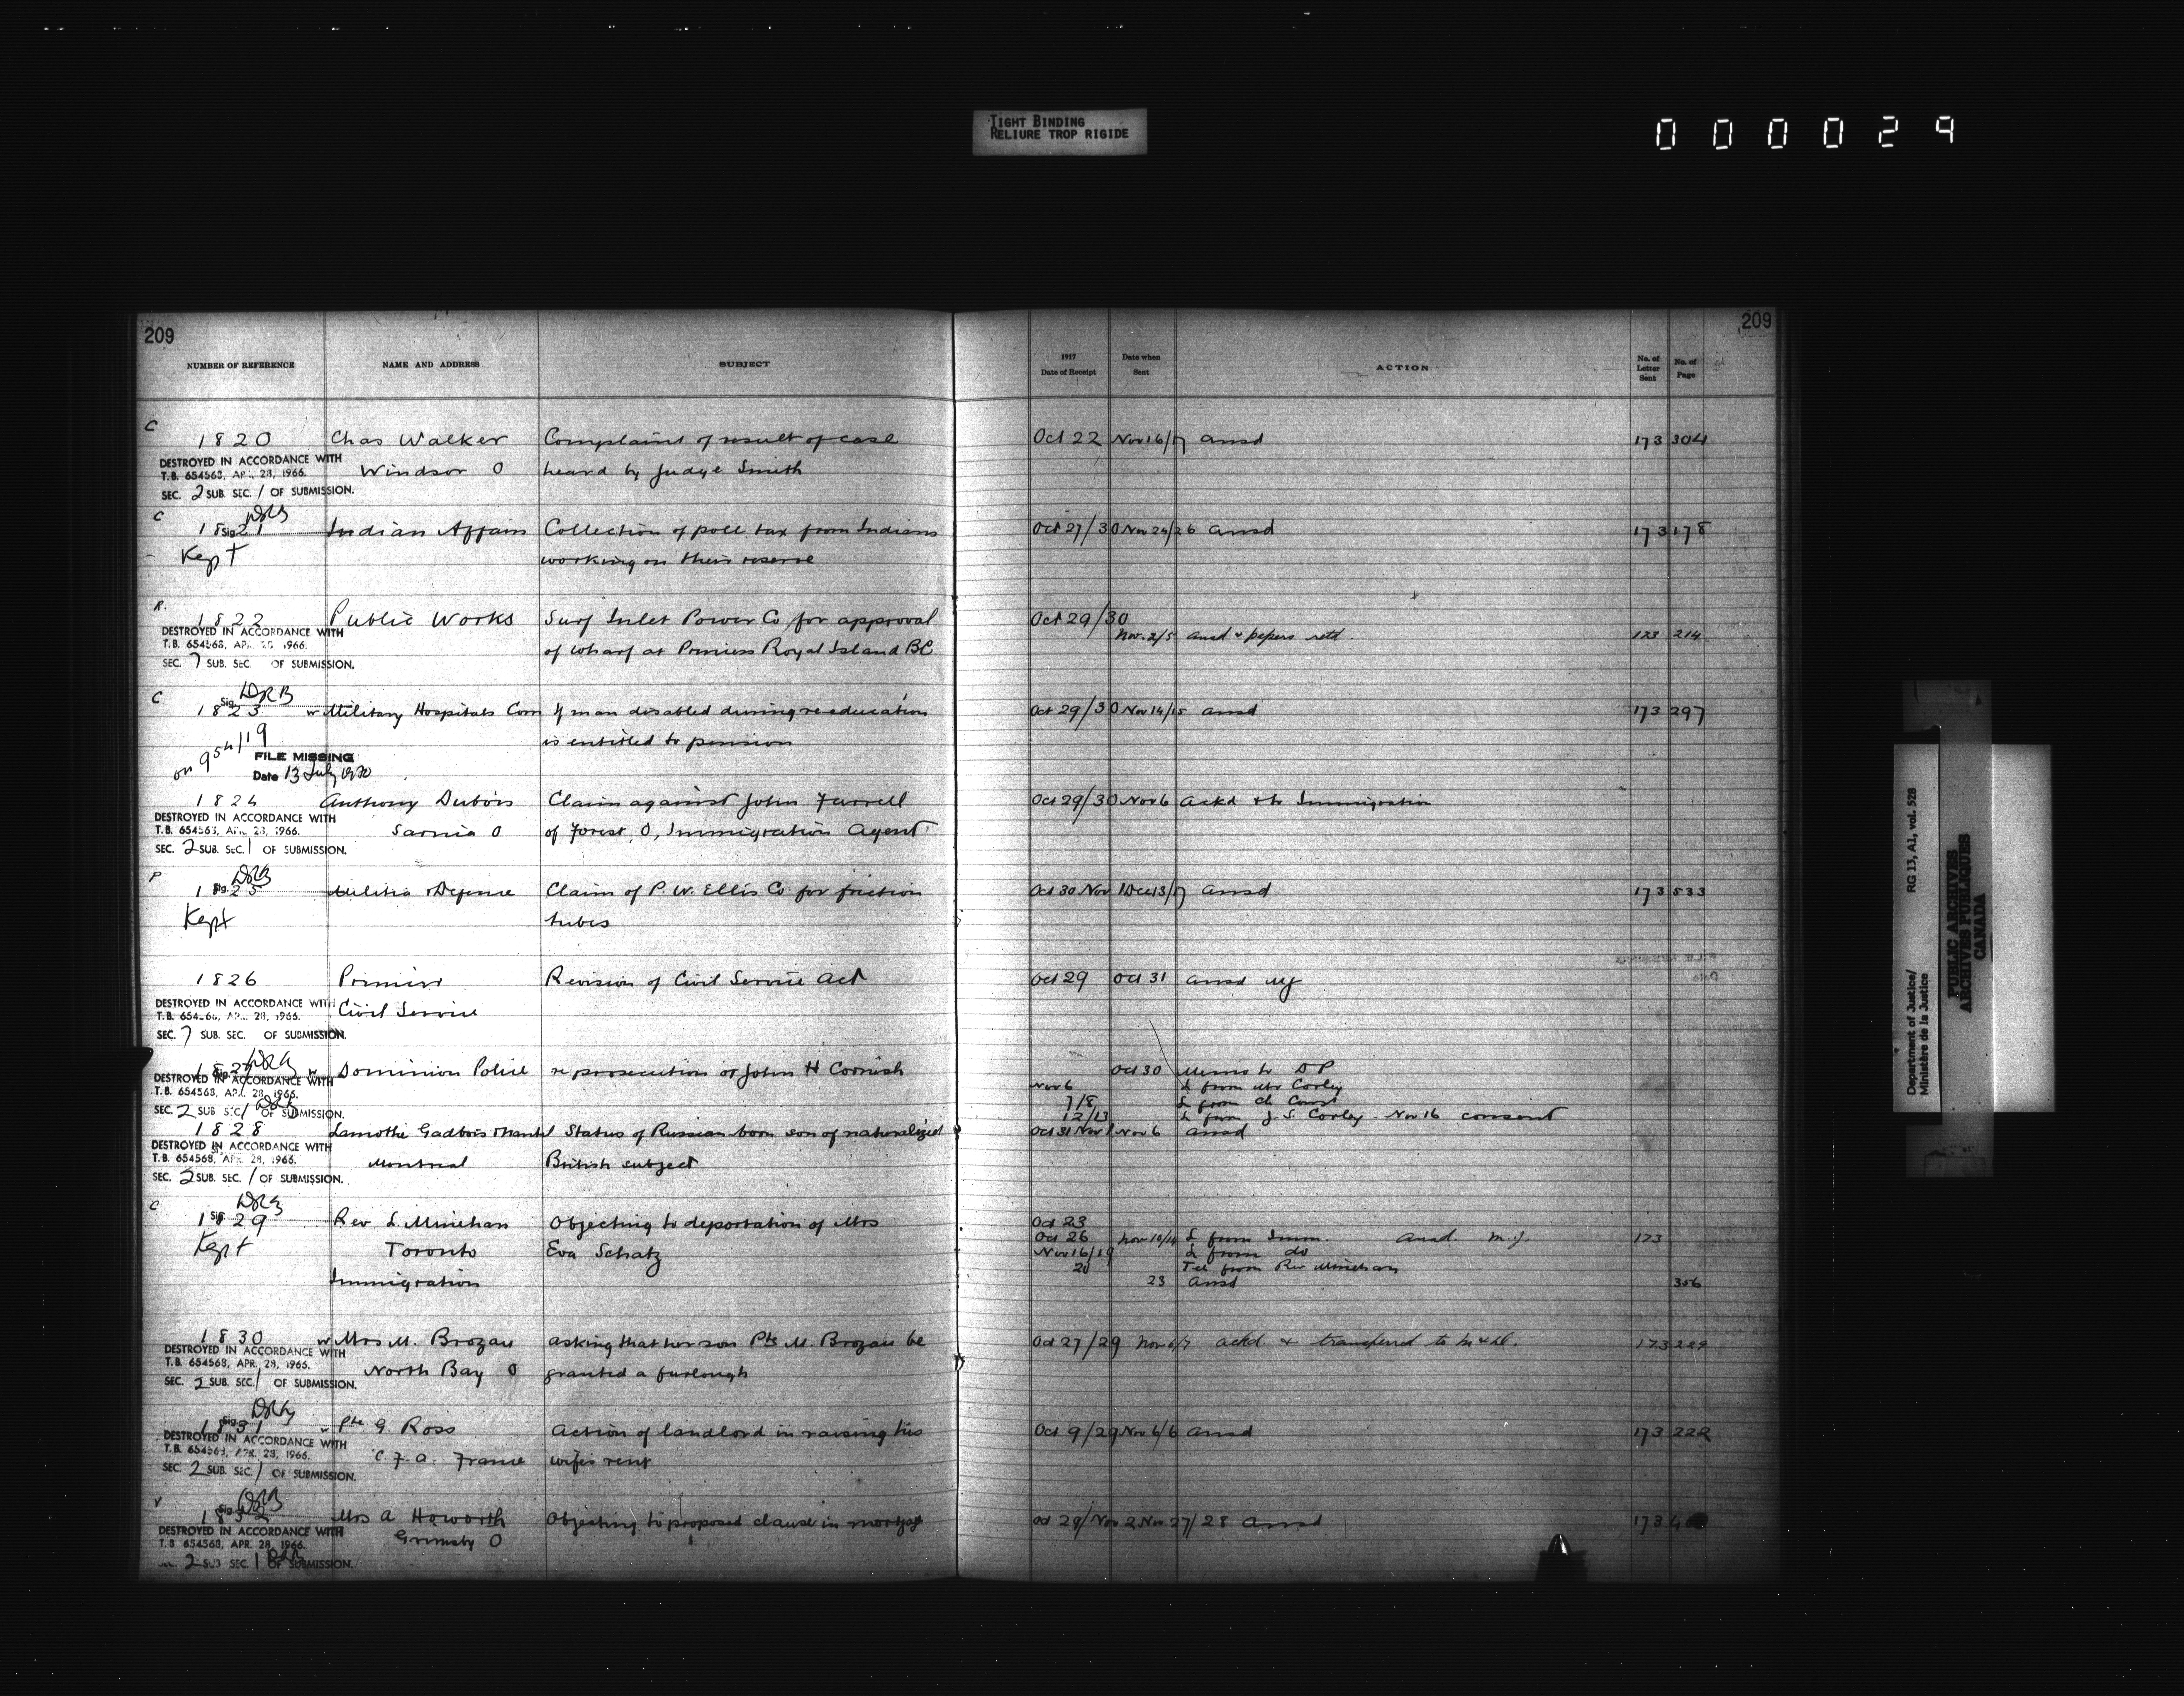 TIGHT BINDING
RELIURE TROP RIGIDE
000029
209
209
NUMBER OF REFERENCE NAME AND ADDRESS SUBJECT 1917 Date of Receipt Date when Sent ACTION No. of Letter Sent No. of Page
C
1820 Chas Walker Complaint of result of case Oct 22 Nov 16/17 ansd 173 304
DESTROYED IN ACCORDANCE WITH
T.B. 654568, APR. 28, 1966.
Windsor O heard by Judge Smith
SEC. 2 SUB. SEC. 1 OF SUBMISSION.
C
DRB
1821 Sig. Indian Affairs Collection of poll tax from Indians Oct 27/30 Nov 24/26 ansd 173 178
Kept working on their reserve
R.
1822 Public Works Surf Inlet Power Co for approval Oct 29/30
DESTROYED IN ACCORDANCE WITH
T.B. 654568, APR. 28, 1966.
of wharf at Princess Royal Island BC Nov. 2/5 ansd & papers retd. 173 214
SEC. 7 SUB. SEC. OF SUBMISSION.
C
DRB
1823 Sig. w Military Hospitals Com If man disabled during re-education Oct 29/30 Nov 14/15 ansd 173 297
is entitled to pension
on 954/19
FILE MISSING
Date 13 July 1970
1824 Anthony Dubois Claim against John Farrell Oct 29/30 Nov 6 Ackd & to Immigration
DESTROYED IN ACCORDANCE WITH
T.B. 654568, APR. 28, 1966.
Sarnia O of Forest, O, Immigration Agent
SEC. 2 SUB. SEC. 1 OF SUBMISSION.
P
DRB
1825 Sig. Militia & Defense Claim of P. W. Ellis Co for friction Oct 30 Nov 1 Dec 13/17 ansd 173 533
Kept tubes
1826 Premier Revision of Civil Service Act Oct 29 Oct 31 ansd MJ
DESTROYED IN ACCORDANCE WITH
T.B. 654568, APR. 28, 1966.
Civil Service
SEC. 7 SUB. SEC. OF SUBMISSION.
DRB
1827 Sig. w Dominion Police re prosecution of John H Cornish Oct 30 Memo to DP
DESTROYED IN ACCORDANCE WITH
T.B. 654568, APR. 28, 1966.
SEC. 2 SUB. SEC. 1 OF SUBMISSION.
Nov 6 L from Mr Corley
7/8 L from
12/13 L from J. S. Corley Nov 16 consent
1828 Lamothe Gadbois & Nantel Status of Russian born son of naturalized Oct 31 Nov 1 Nov 6 ansd
DESTROYED IN ACCORDANCE WITH
T.B. 654568, APR. 28, 1966.
Montreal British subject
SEC. 2 SUB. SEC. 1 OF SUBMISSION.
C
DRB
1829 Sig. Rev L. Minehan Objecting to deportation of Mrs Oct 23
Kept Toronto Eva Schatz Oct 26 Nov 10/14 L from Imm. Ansd. M.J. 173
Nov 16/19 L from do
20 Tel from Rev Minehan
Immigration 23 ansd 356
1830 w Mrs M. Brozau asking that her son Pte M. Brozau be Oct 27/29 Nov 6/7 ackd. & transferred to M & D. 173 229
DESTROYED IN ACCORDANCE WITH
T.B. 654568, APR. 28, 1966.
North Bay O granted a furlough
SEC. 2 SUB. SEC. 1 OF SUBMISSION.
DRB
1831 Sig. Pte G. Ross Action of landlord in raising his Oct 9/29 Nov 6/6 ansd 173 222
DESTROYED IN ACCORDANCE WITH
T.B. 654568, APR. 28, 1966.
C.F.A. France wife's rent
SEC. 2 SUB. SEC. 1 OF SUBMISSION.
V
DRB
1832 Sig. Mrs A Howorth Objecting to proposed clause in mortgage Oct 29/Nov 2 Nov 27/28 Ansd 173
DESTROYED IN ACCORDANCE WITH
T.B. 654568, APR. 28, 1966.
Grimsby O
2 SUB SEC. 1 OF SUBMISSION.
Department of Justice/ RG 13, A1, vol. 528
Ministère de la Justice
PUBLIC ARCHIVES
ARCHIVES PUBLIQUES
CANADA